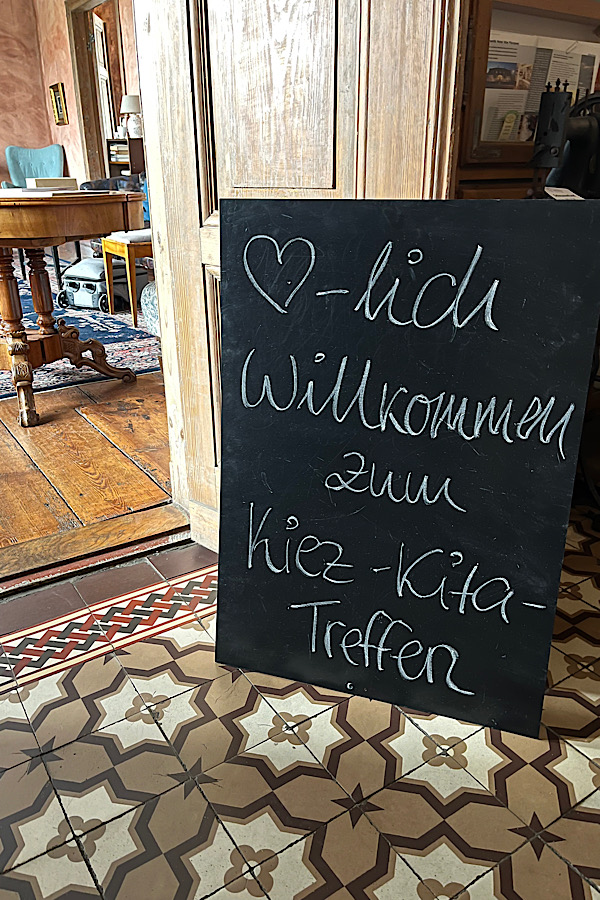 ♡-lich
Willkommen
zum
Kiez-Kita-
Treffen